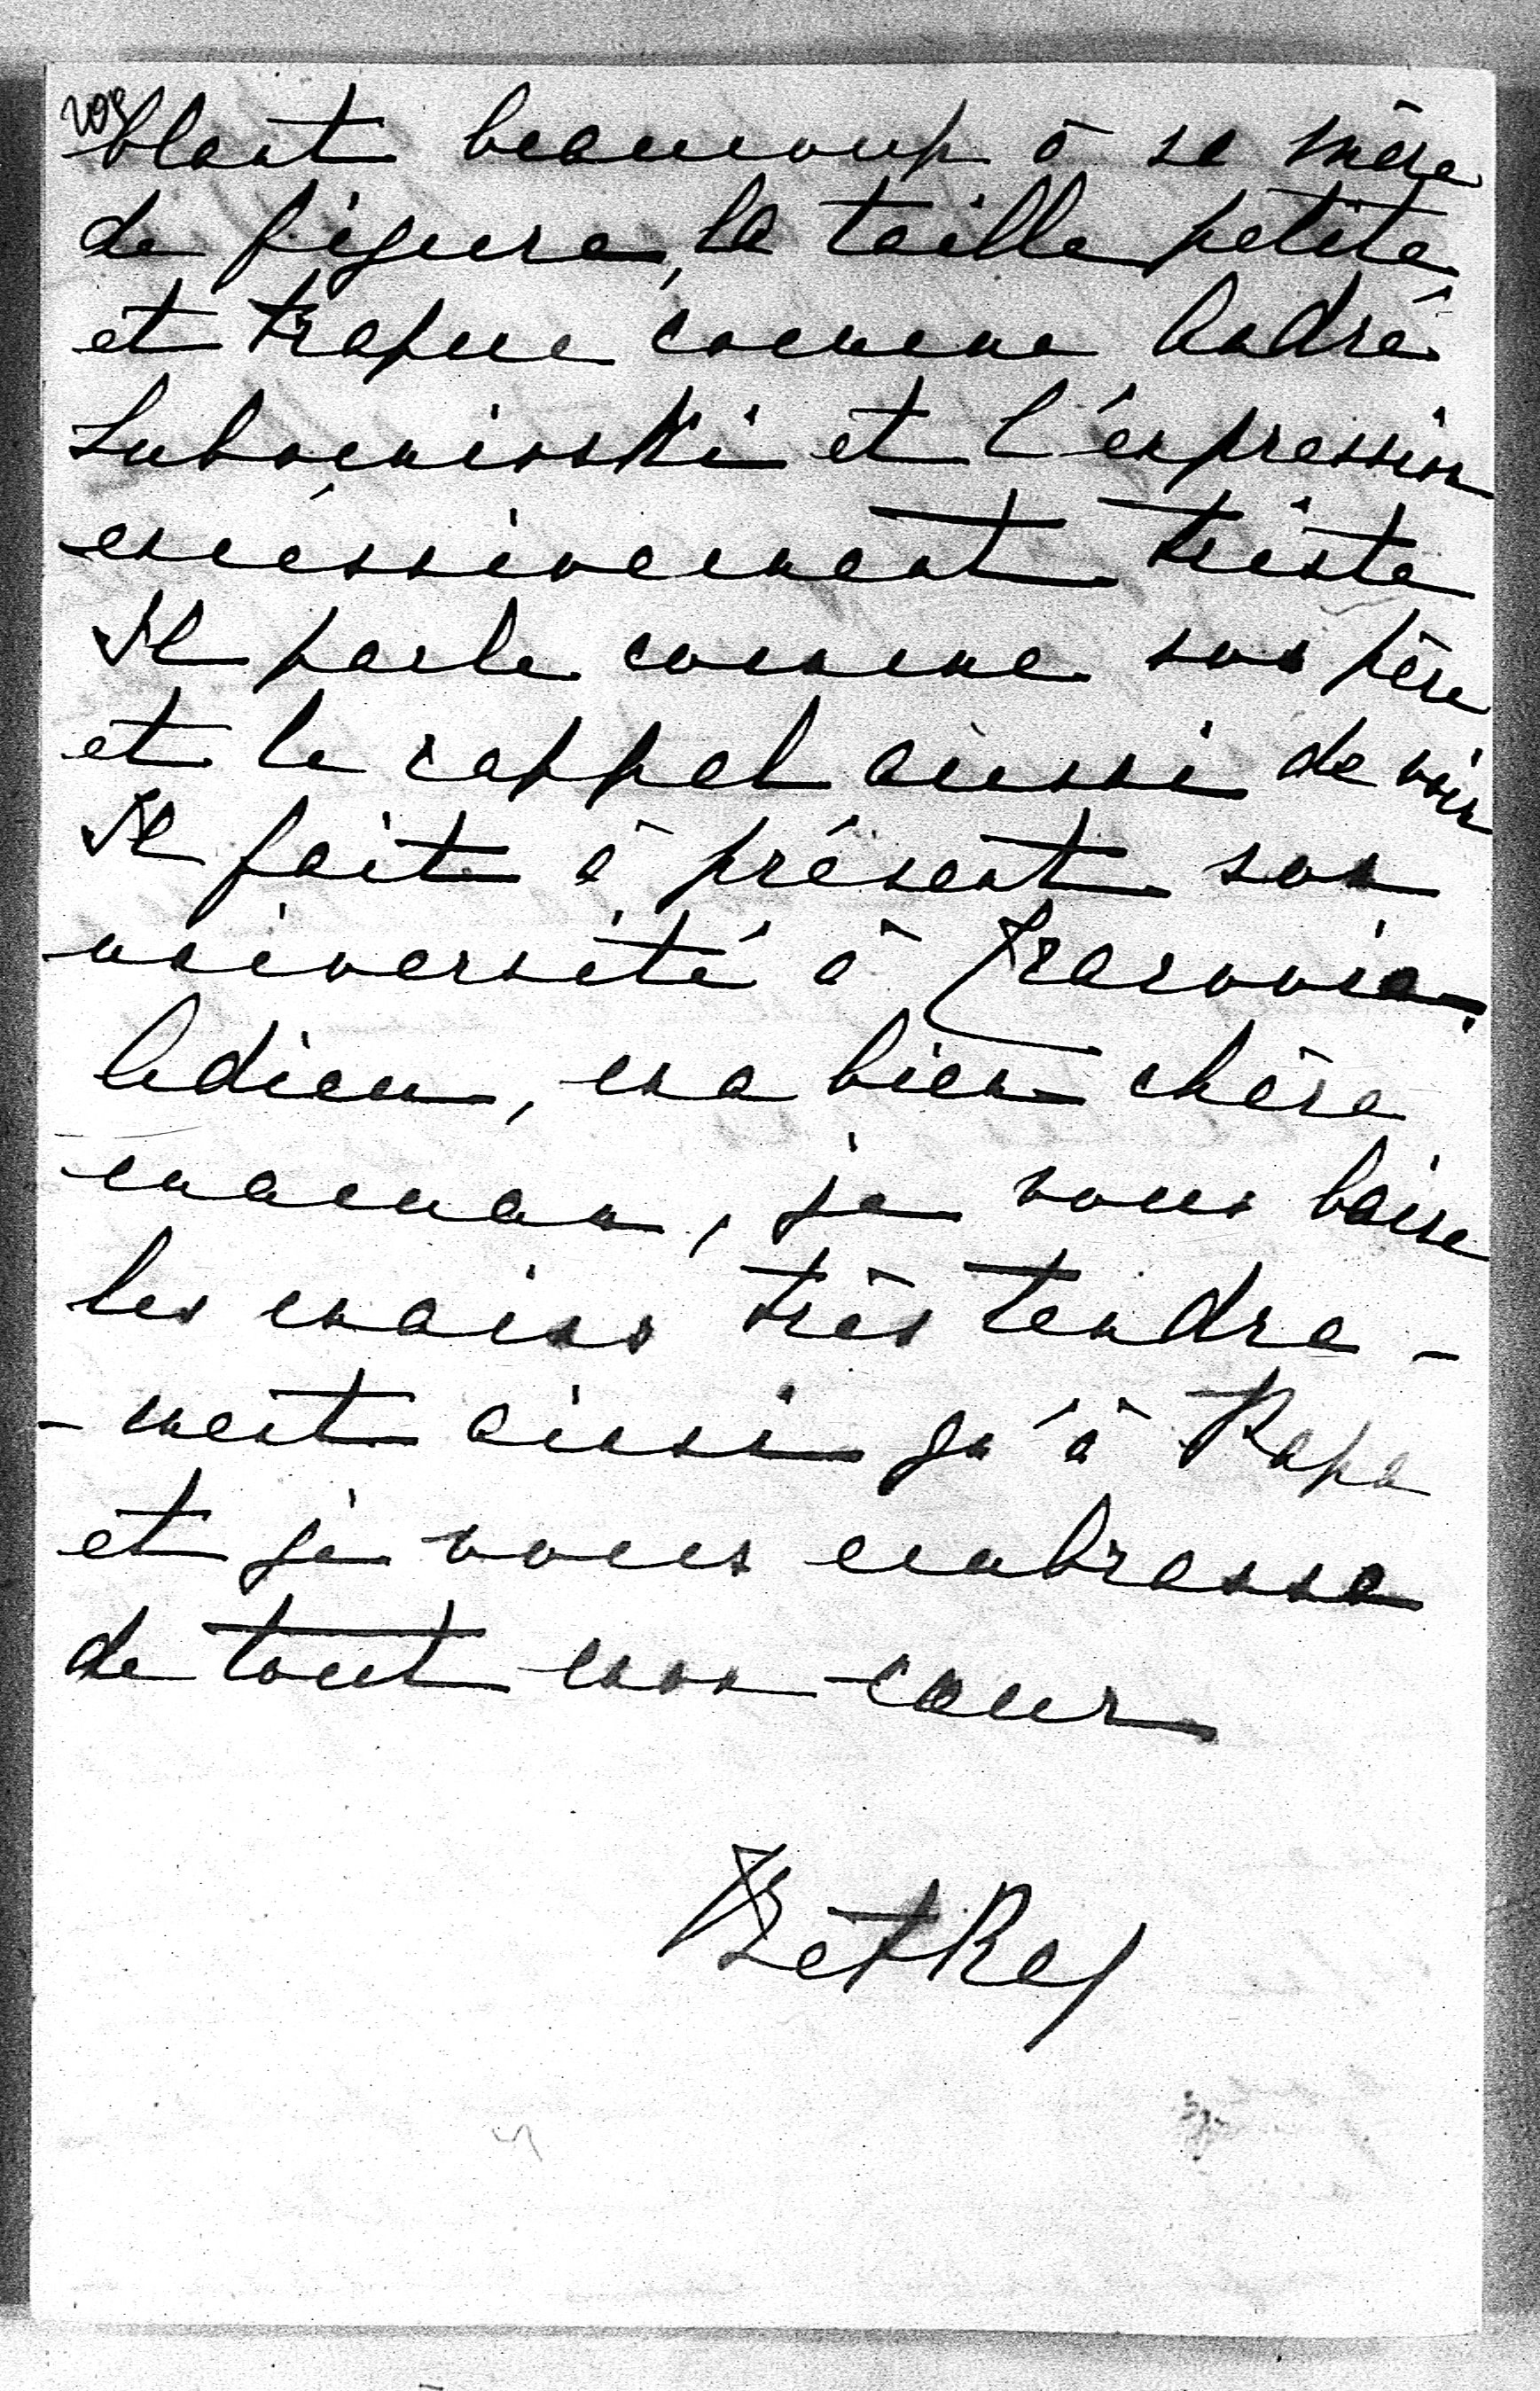 209
blant beaucoup à sa mère
de figure, la taille petite
et trapue comme André
Lubomirski et l'expression
excessivement triste
Il parle comme son père
et le rappel aussi de voix
Il fait à présent son
université à Kracovie.
Adieu, ma bien chère
maman, je vous baise
les mains très tendre-
-ment ainsi qu'à Papa
et je vous embrasse
de tout mon cœur